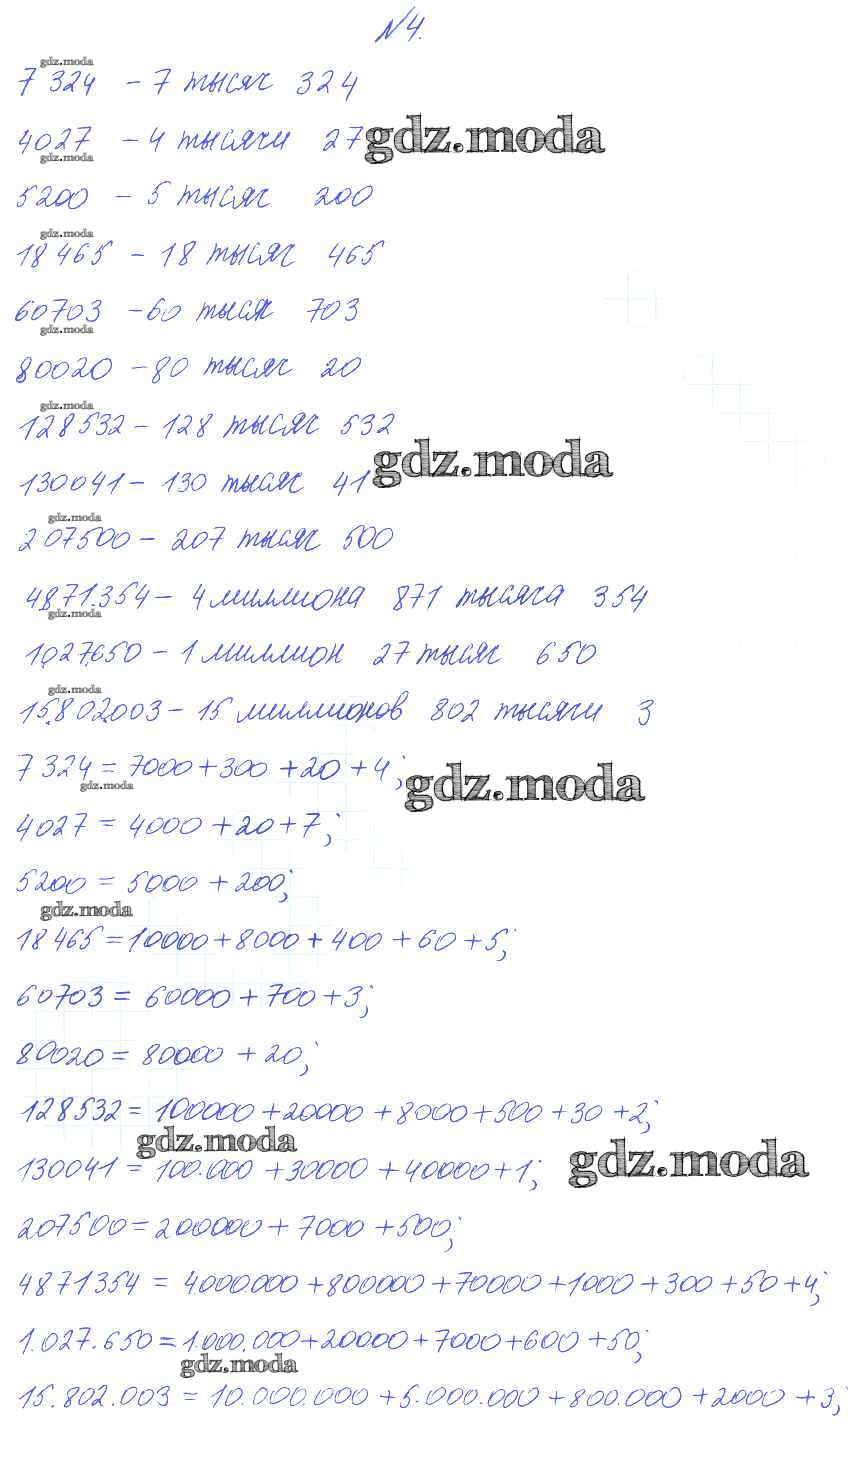 №4.
gdz.moda
7 324 – 7 тысяч 324
4027 – 4 тысячи 27 gdz.moda
gdz.moda
5200 – 5 тысяч 200
gdz.moda
18 465 – 18 тысяч 465
60703 – 60 тысяч 703
gdz.moda
80020 – 80 тысяч 20
gdz.moda
128532 – 128 тысяч 532
gdz.moda
130041 – 130 тысяч 41
gdz.moda
207500 – 207 тысяч 500
4.871.354 – 4 миллиона 871 тысяча 354
gdz.moda
1.027.650 – 1 миллион 27 тысяч 650
gdz.moda
15.802.003 – 15 миллионов 802 тысячи 3
7 324 = 7000 + 300 + 20 + 4; gdz.moda
gdz.moda
4027 = 4000 + 20 + 7;
5200 = 5000 + 200;
gdz.moda
18 465 = 10000 + 8000 + 400 + 60 + 5;
60703 = 60000 + 700 + 3;
80020 = 80000 + 20;
128532 = 100000 + 20000 + 8000 + 500 + 30 + 2;
gdz.moda
130041 = 100.000 + 30000 + 40000 + 1; gdz.moda
207500 = 200000 + 7000 + 500;
4871354 = 4000.000 + 800000 + 70000 + 1000 + 300 + 50 + 4;
1.027.650 = 1.000.000 + 20000 + 7000 + 600 + 50;
gdz.moda
15.802.003 = 10.000.000 + 5.000.000 + 800.000 + 2000 + 3;